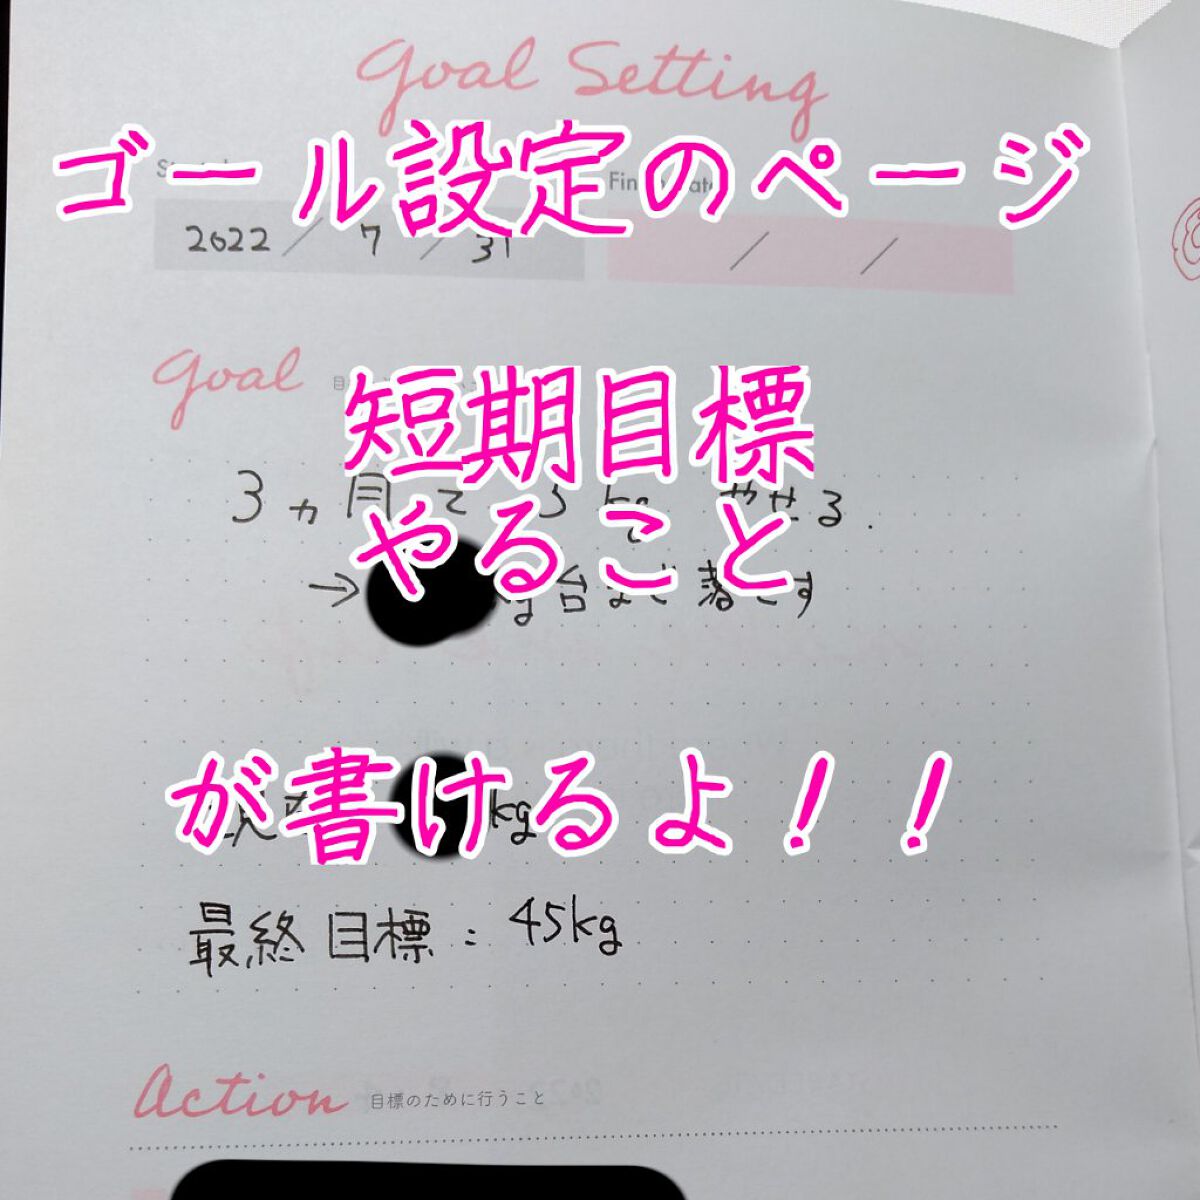 Goal Setting
ゴール設定のページ
2022 / 7 / 31
/ /
Goal
短期目標
3ヵ月で 5kg やせる.
やること
→ g台まで落とす
が書けるよ!!
kg
最終目標: 45kg
Action 目標のために行うこと